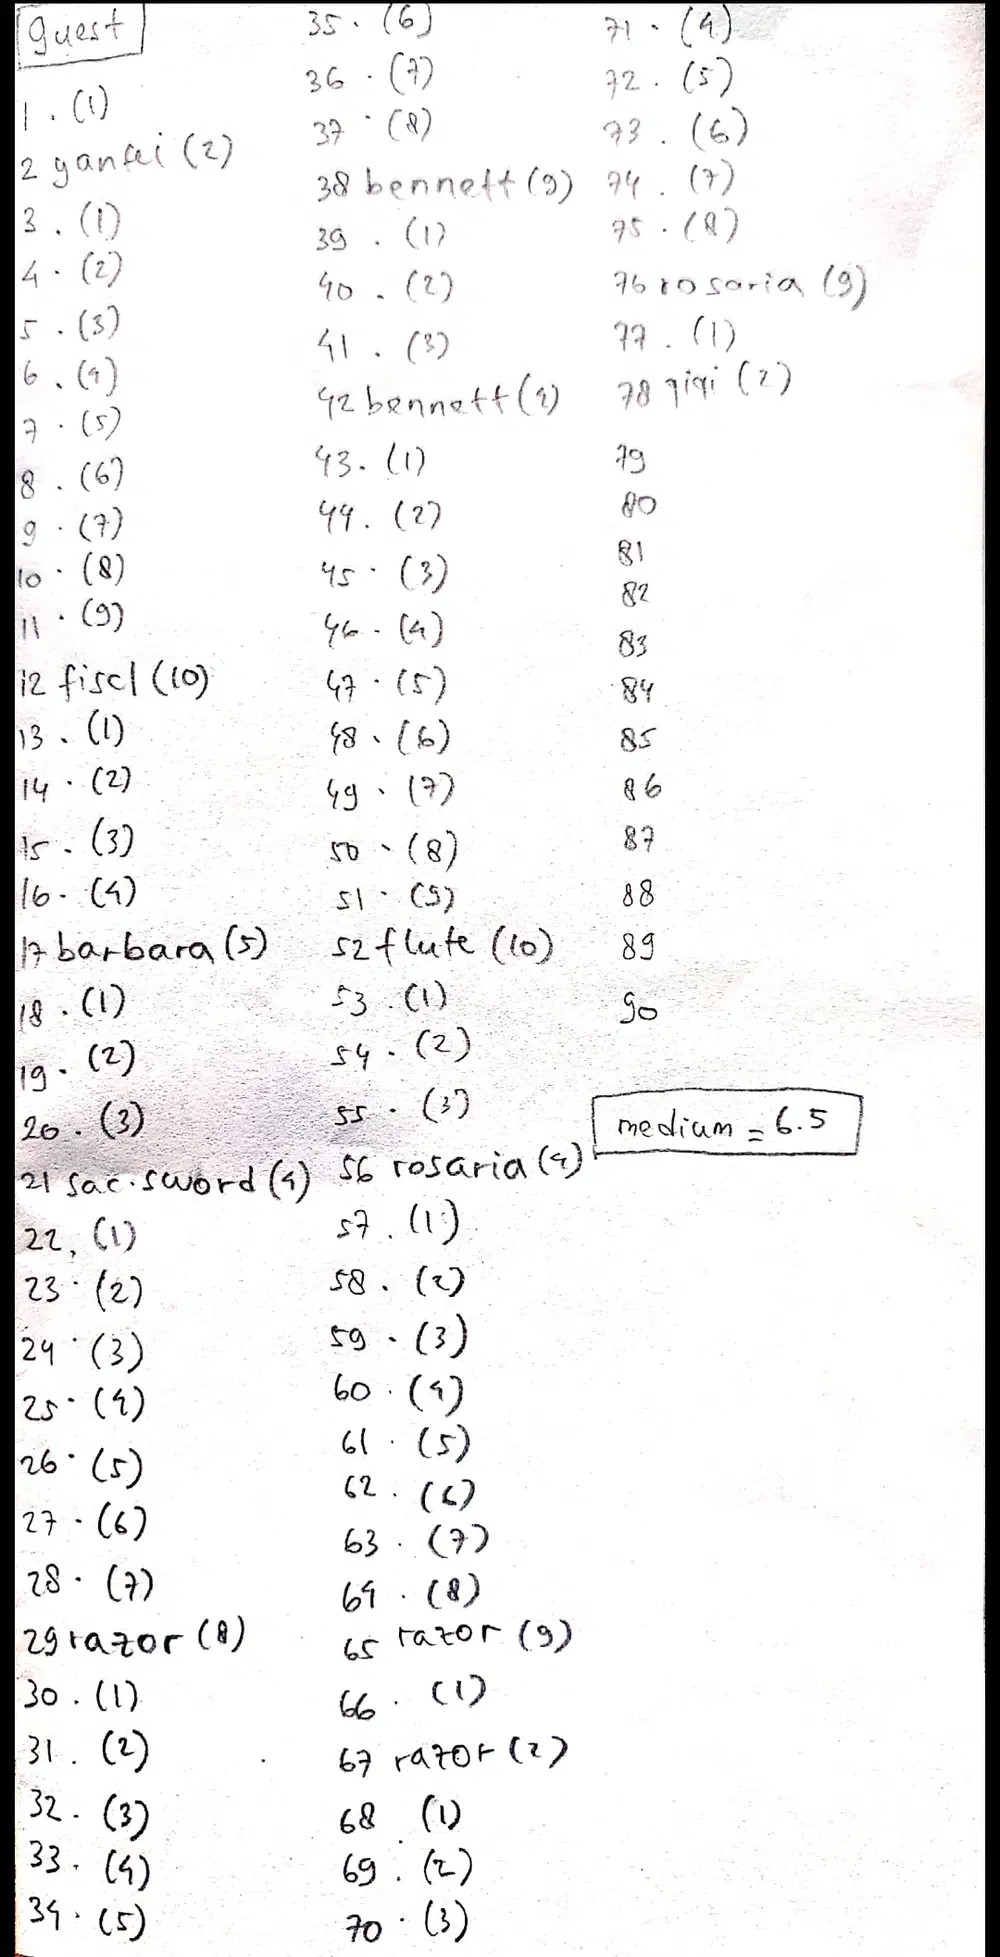 guest
1 . (1)
2 yanfei (2)
3 . (1)
4 . (2)
5 . (3)
6 . (4)
7 . (5)
8 . (6)
9 . (7)
10 . (8)
11 . (9)
12 fiscl (10)
13 . (1)
14 . (2)
15 . (3)
16 . (4)
17 barbara (5)
18 . (1)
19 . (2)
20 . (3)
21 sac.sword (4)
22 . (1)
23 . (2)
24 . (3)
25 . (4)
26 . (5)
27 . (6)
28 . (7)
29 razor (8)
30 . (1)
31 . (2)
32 . (3)
33 . (4)
34 . (5)
35 . (6)
36 . (7)
37 . (8)
38 bennett (9)
39 . (1)
40 . (2)
41 . (3)
42 bennett (4)
43 . (1)
44 . (2)
45 . (3)
46 . (4)
47 . (5)
48 . (6)
49 . (7)
50 . (8)
51 . (9)
52 flute (10)
53 . (1)
54 . (2)
55 . (3)
56 rosaria (4)
57 . (1)
58 . (2)
59 . (3)
60 . (4)
61 . (5)
62 . (6)
63 . (7)
64 . (8)
65 razor (9)
66 . (1)
67 razor (2)
68 (1)
69 . (2)
70 . (3)
71 . (4)
72 . (5)
73 . (6)
74 . (7)
75 . (8)
76 rosaria (9)
77 . (1)
78 qiqi (2)
79
80
81
82
83
84
85
86
87
88
89
90
medium = 6.5